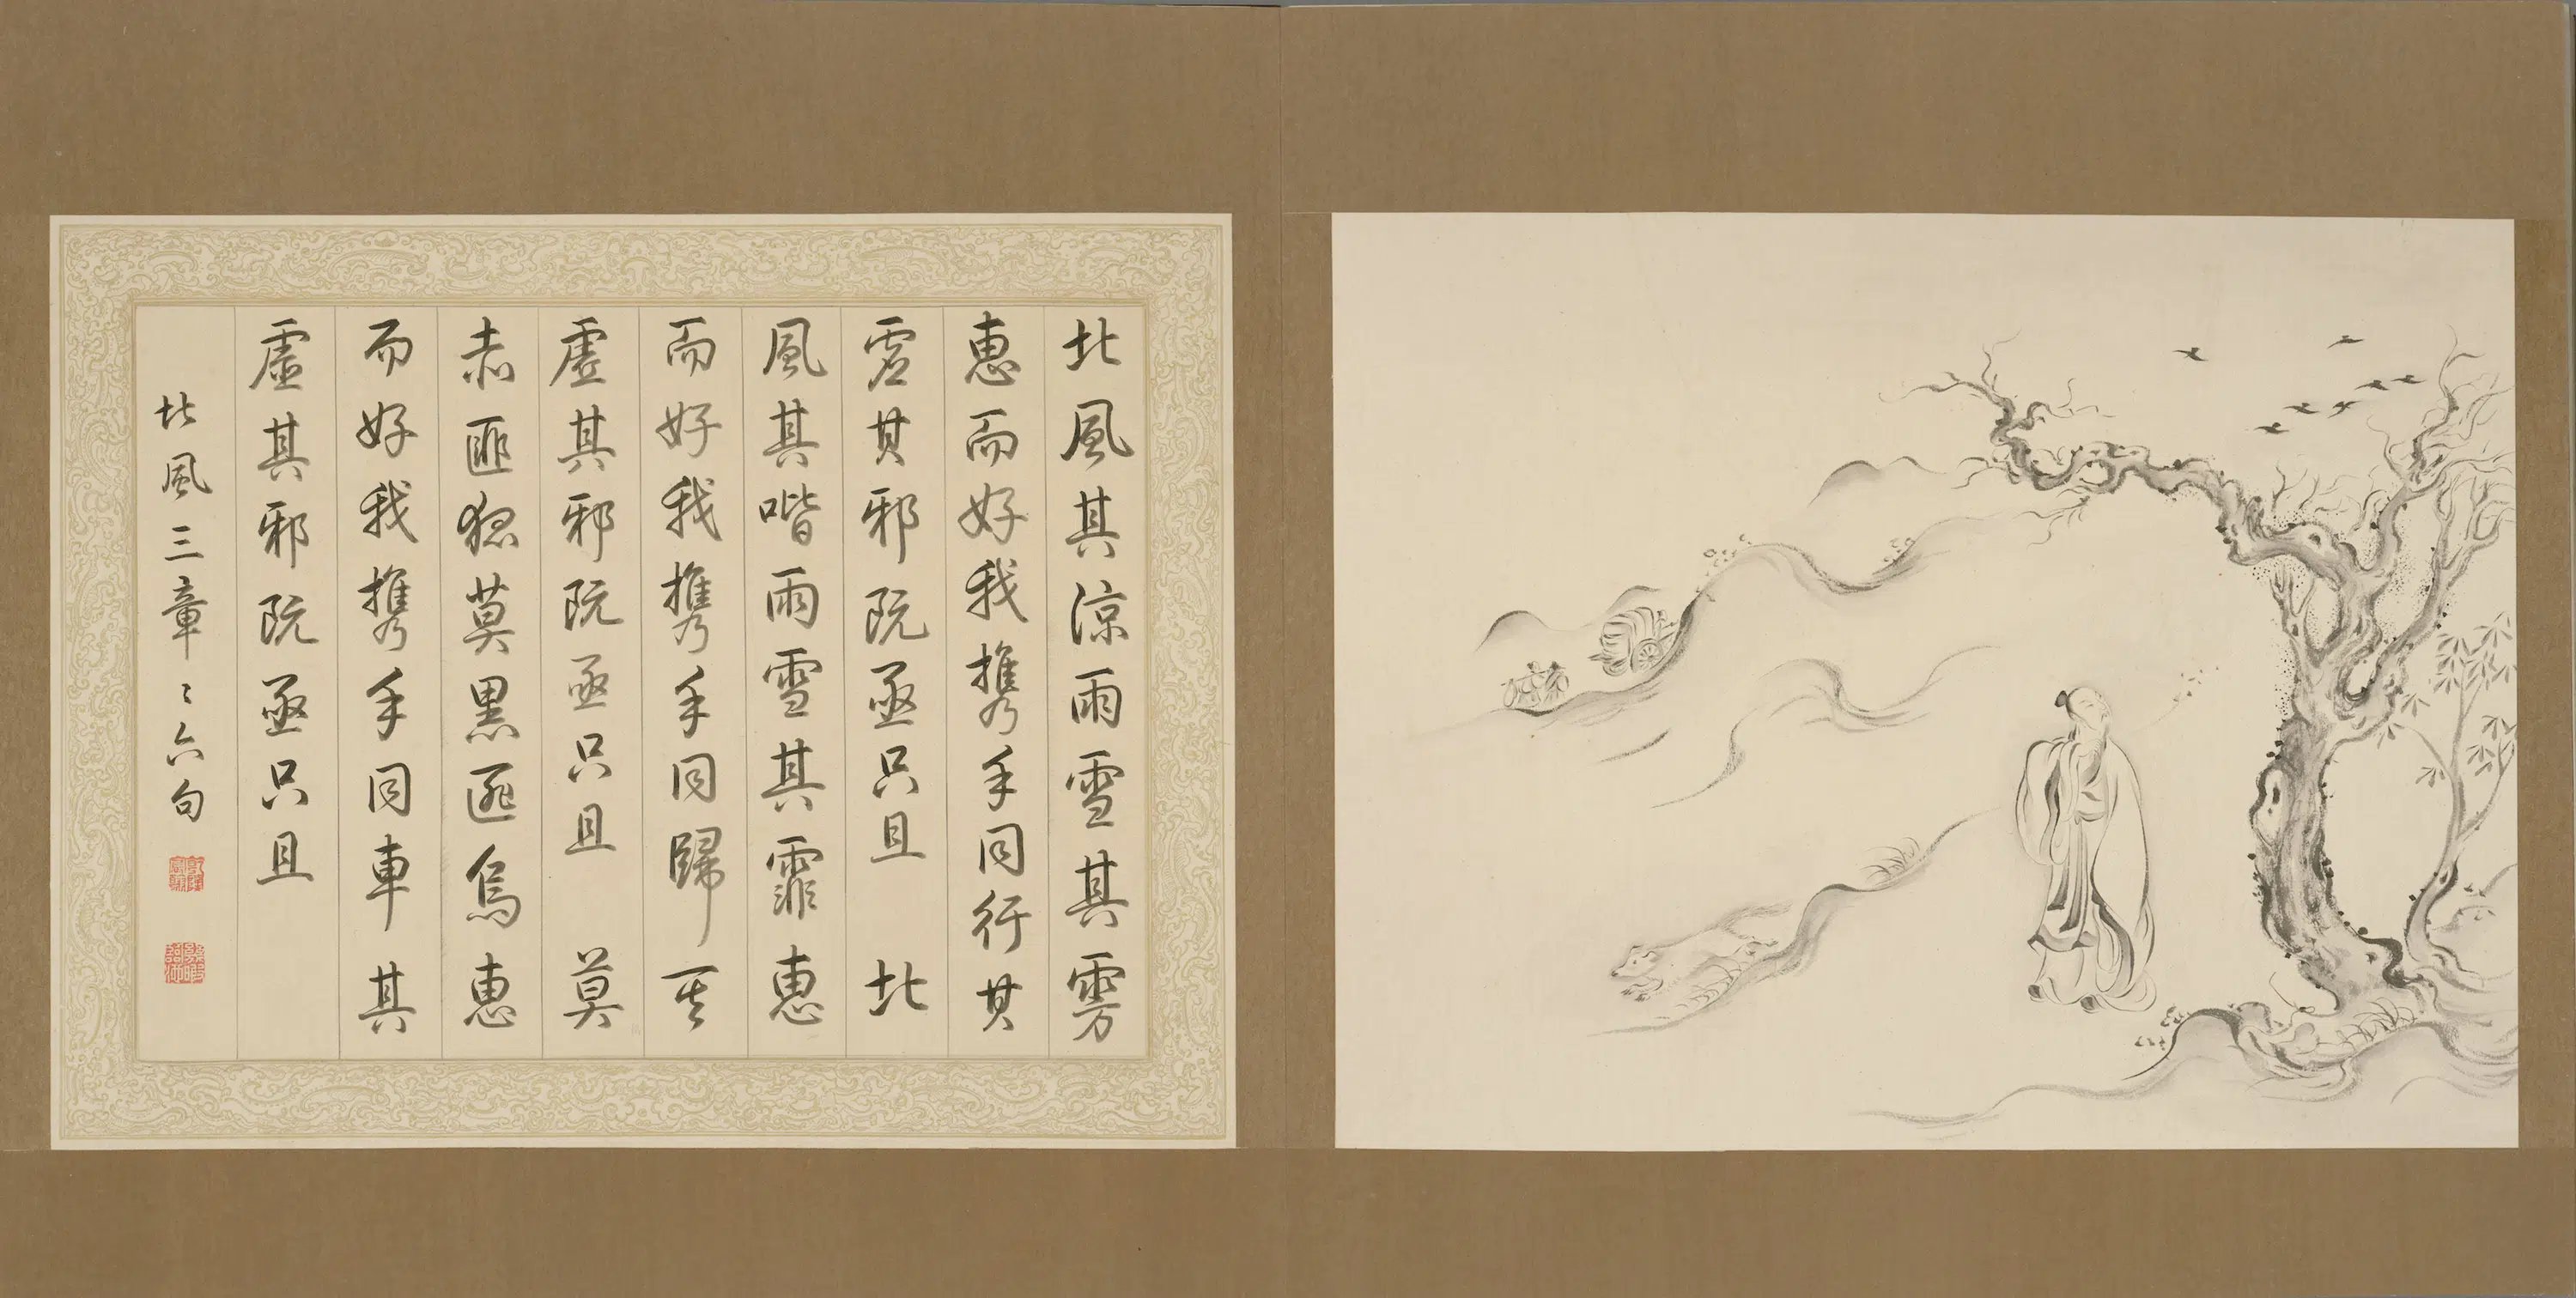 北風其涼雨雪其雱
惠而好我攜手同行其
虛其邪既亟只且 北
風其喈雨雪其霏惠
而好我攜手同歸其
虛其邪既亟只且 莫
赤匪狐莫黑匪烏惠
而好我攜手同車其
虛其邪既亟只且
北風三章章六句